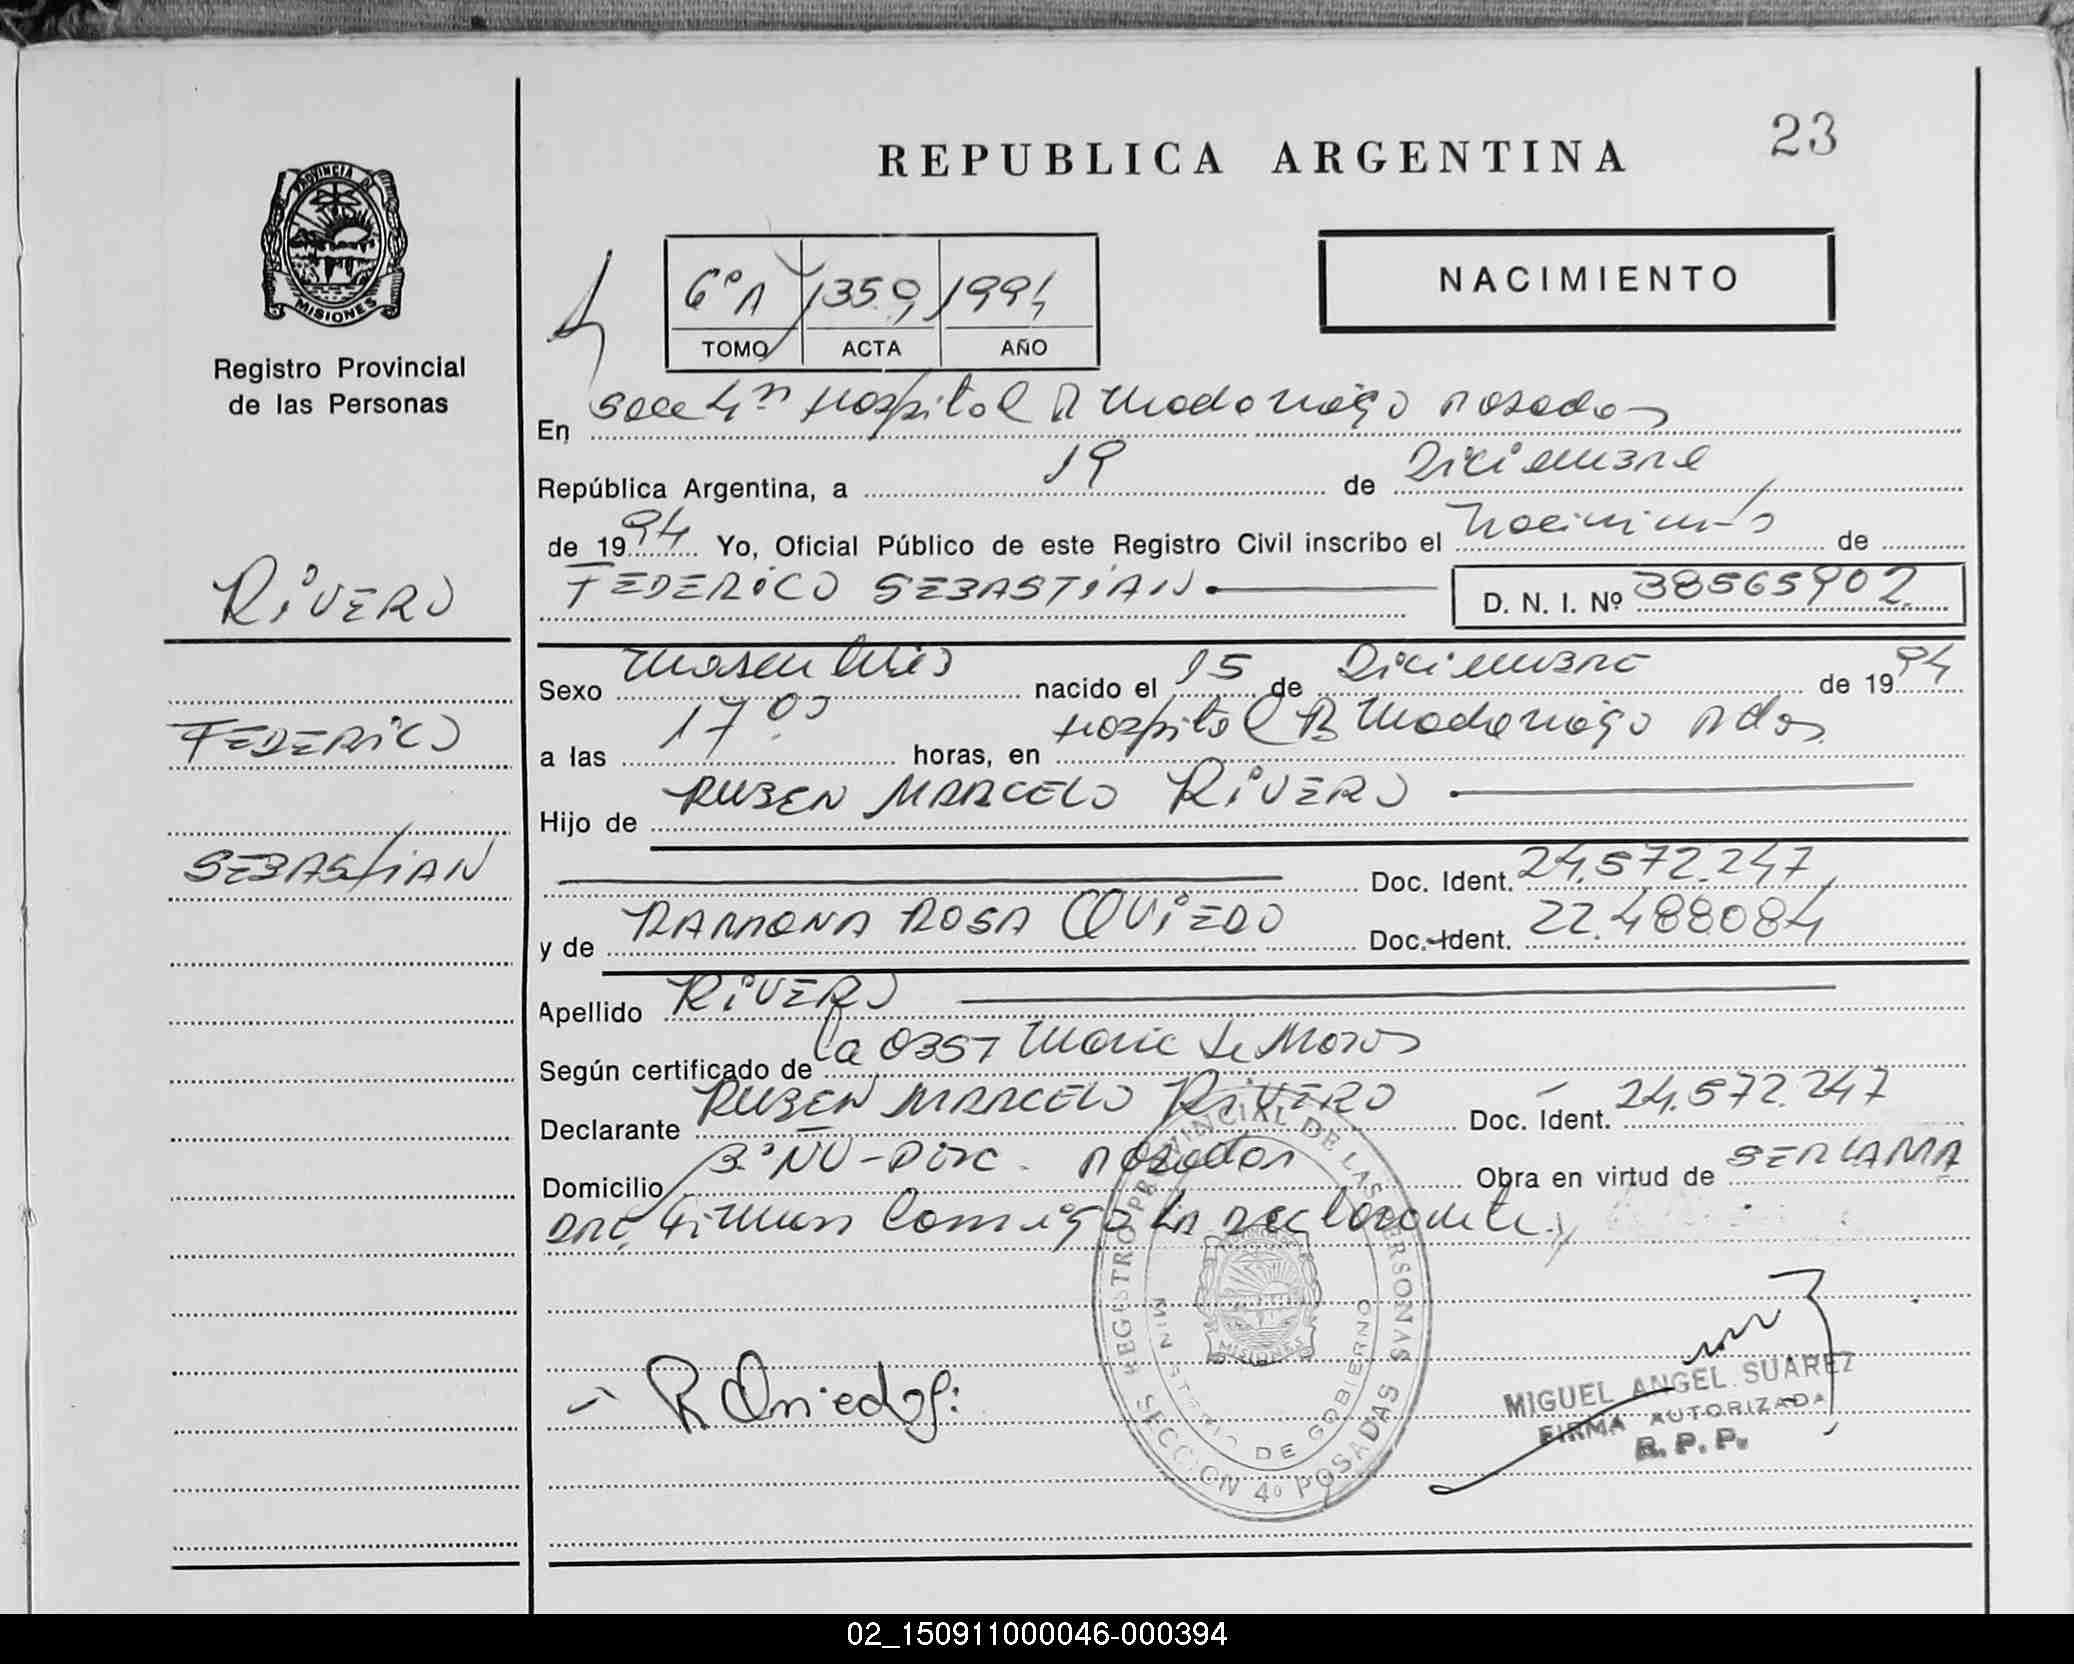 23
REPUBLICA ARGENTINA
NACIMIENTO
PROVINCIA DE
MISIONES
Registro Provincial
de las Personas
6º A 1359 1994
TOMO ACTA AÑO
En Secc 4ª Hospital R Madariaga Posadas
República Argentina, a 19 de Diciembre
de 1994 Yo, Oficial Público de este Registro Civil inscribo el Nacimiento de
FEDERICO SEBASTIAN D. N. I. Nº 38565902
RIVERO
FEDERICO
SEBASTIAN
Sexo Masculino nacido el 15 de Diciembre de 1994
a las 17 00 horas, en Hospital R Madariaga Pdas
Hijo de RUBEN MARCELO RIVERO
Doc. Ident. 24.572.247
y de RAMONA ROSA OVIEDO Doc. Ident. 22.488084
Apellido RIVERO
Según certificado de la 0357 Maria
Declarante RUBEN MARCELO RIVERO Doc. Ident. 24.572.247
Domicilio Bº Posadas Obra en virtud de SER LA MA
DRE, Firman Conmigo La declarante
R Oviedo
REGISTRO PROVINCIAL DE LAS PERSONAS
MINISTERIO DE GOBIERNO
MISIONES
SECCION 4º POSADAS
MIGUEL ANGEL SUAREZ
FIRMA AUTORIZADA
R. P. P.
02_150911000046-000394